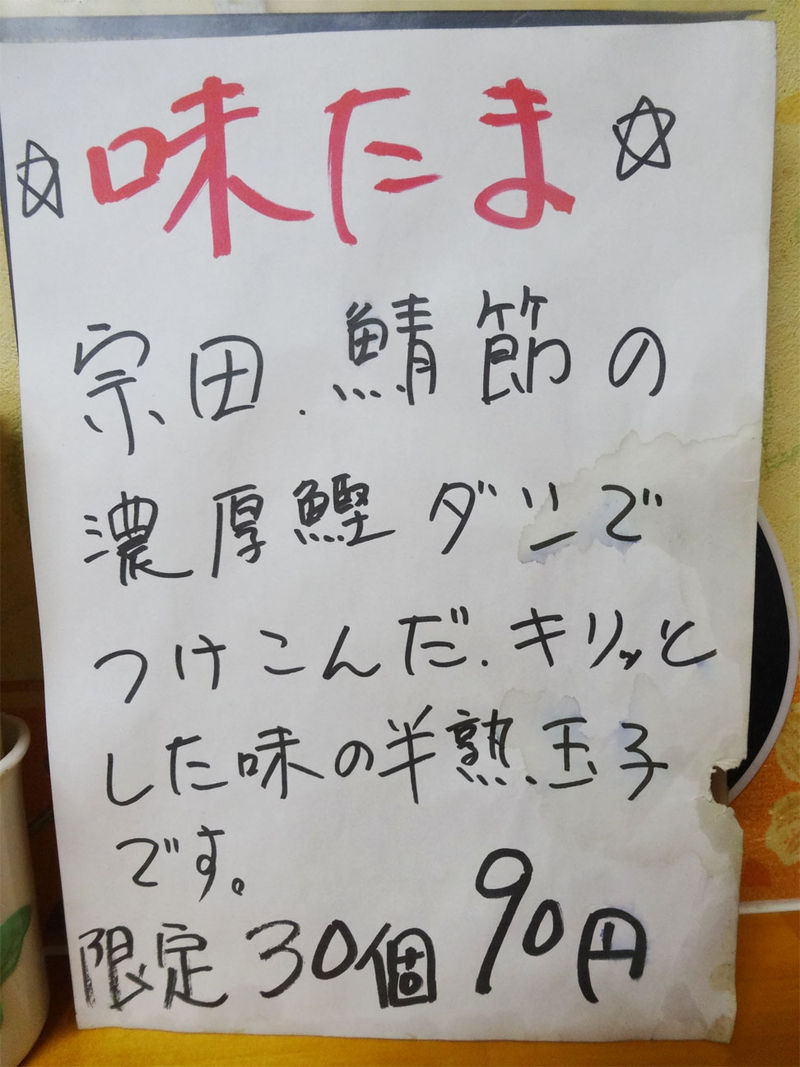 ☆味たま☆
宗田.鯖節の
濃厚鰹ダシで
つけこんだ.キリッと
した味の半熟玉子
です。
限定30個 90円